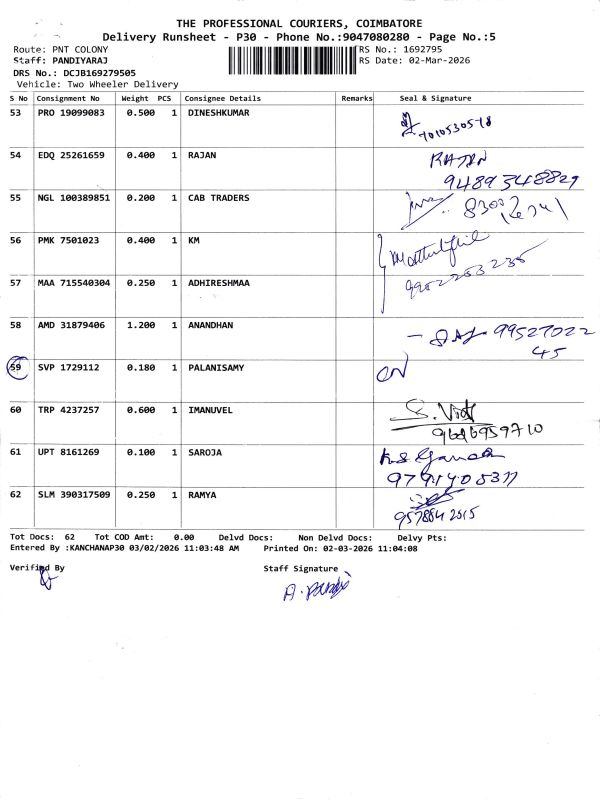 THE PROFESSIONAL COURIERS, COIMBATORE
Delivery Runsheet - P30 - Phone No.:9047080280 - Page No.:5
Route: PNT COLONY RS No.: 1692795
Staff: PANDIYARAJ RS Date: 02-Mar-2026
DRS No.: DCJB169279505
Vehicle: Two Wheeler Delivery
S No Consignment No Weight PCS Consignee Details Remarks Seal & Signature
53 PRO 19099083 0.500 1 DINESHKUMAR 7010530578
54 EDQ 25261659 0.400 1 RAJAN RAJAN
9489348829
55 NGL 100389851 0.200 1 CAB TRADERS
56 PMK 7501023 0.400 1 KM
57 MAA 715540304 0.250 1 ADHIRESHMAA 9952253235
58 AMD 31879406 1.200 1 ANANDHAN 99527022
45
59 SVP 1729112 0.180 1 PALANISAMY
60 TRP 4237257 0.600 1 IMANUVEL
61 UPT 8161269 0.100 1 SAROJA
62 SLM 390317509 0.250 1 RAMYA
Tot Docs: 62 Tot COD Amt: 0.00 Delvd Docs: Non Delvd Docs: Delvy Pts:
Entered By :KANCHANAP30 03/02/2026 11:03:48 AM Printed On: 02-03-2026 11:04:08
Verified By Staff Signature